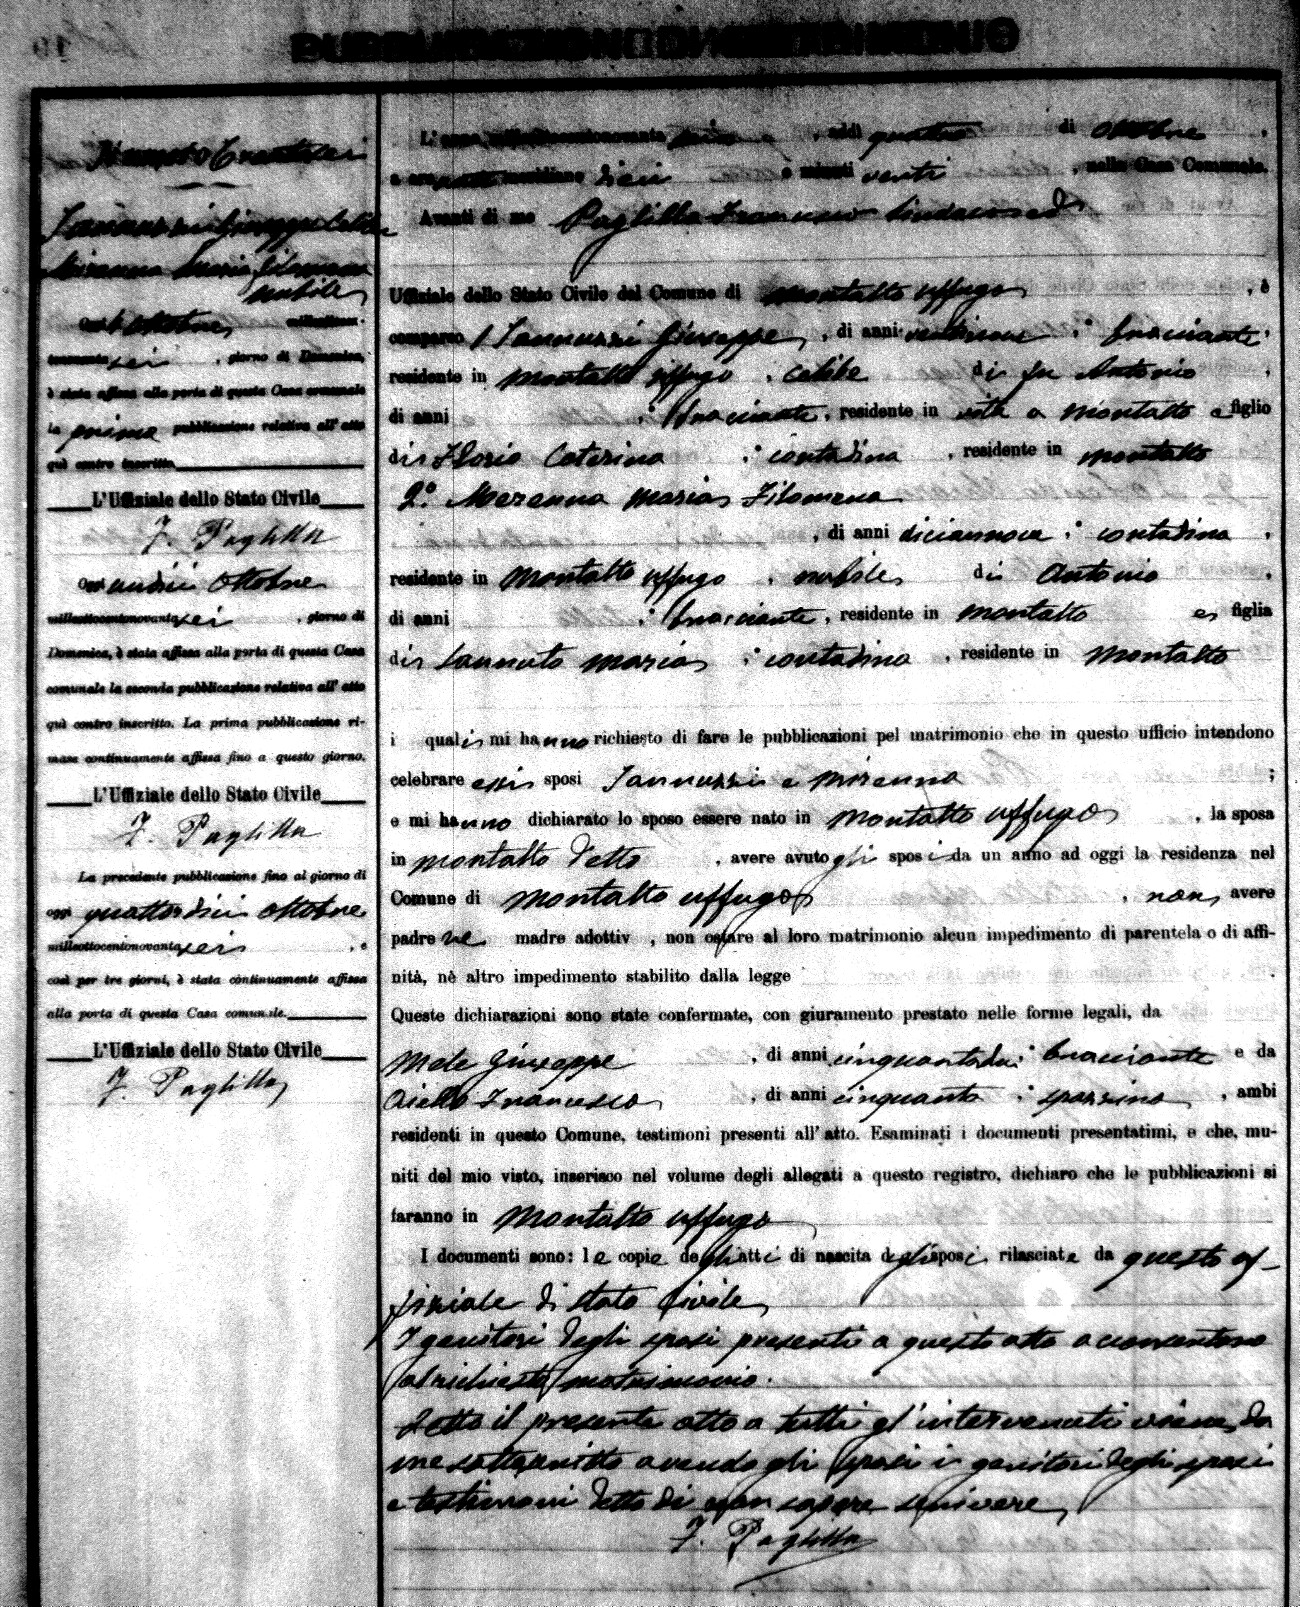 Numero Trentasei
Iannuzzi Giuseppe Celibe
Miranna Maria Filomena
nubile
Oggi 4 ottobre milleotto-
centonovantasei, giorno di Domenica,
è stata affissa alla porta di questa Casa comunale
la prima pubblicazione relativa all'atto
quì contro inscritto
L'Uffiziale dello Stato Civile
F. Paglilla
Oggi undici Ottobre
milleottocentonovantasei, giorno di
Domenica, è stata affissa alla porta di questa Casa
comunale la seconda pubblicazione relativa all'atto
quì contro inscritto. La prima pubblicazione ri-
mase continuamente affissa fino a questo giorno.
L'Uffiziale dello Stato Civile
F. Paglilla
La precedente pubblicazione fino al giorno di
oggi quattordici ottobre
milleottocentonovantasei, e
così per tre giorni, è stata continuamente affissa
alla porta di questa Casa comunale.
L'Uffiziale dello Stato Civile
F. Paglilla
L'anno milleottocentonovanta sei, addì quattro di Ottobre,
a ore meridiane dieci e minuti venti, nella Casa Comunale.
Avanti di me Paglilla Francesco Sindaco ed
Uffiziale dello Stato Civile del Comune di Montalto uffugo, è
comparso 1 Iannuzzi Giuseppe, di anni, bracciante,
residente in Montalto uffugo, celibe di fu Antonio,
di anni, bracciante, residente in vita a Montalto e figlio
di Florio Caterina, contadina, residente in Montalto
2.° Meranna Maria Filomena
, di anni diciannove, contadina,
residente in Montalto uffugo, nubile di Antonio,
di anni, bracciante, residente in Montalto e figlia
di Iannuto Maria, contadina, residente in Montalto
i quali mi hanno richiesto di fare le pubblicazioni pel matrimonio che in questo ufficio intendono
celebrare essi sposi Iannuzzi e Miranna;
e mi hanno dichiarato lo sposo essere nato in Montalto uffugo, la sposa
in Montalto detto, avere avuto gli sposi da un anno ad oggi la residenza nel
Comune di Montalto uffugo, non avere
padre ne madre adottiv, non ostare al loro matrimonio alcun impedimento di parentela o di affi-
nità, nè altro impedimento stabilito dalla legge
Queste dichiarazioni sono state confermate, con giuramento prestato nelle forme legali, da
Mele Giuseppe, di anni cinquantadue, bracciante e da
Aiello Francesco, di anni cinquanta, spazzino, ambi
residenti in questo Comune, testimoni presenti all'atto. Esaminati i documenti presentatimi, e che, mu-
niti del mio visto, inserisco nel volume degli allegati a questo registro, dichiaro che le pubblicazioni si
faranno in Montalto uffugo
I documenti sono: le copie degli atti di nascita degli sposi rilasciate da questo uf-
fiziale di stato Civile
I genitori degli sposi presenti a questo atto acconsentono
al richiesto matrimonio.
Letto il presente atto a tutti gl'intervenuti viene da
me sottoscritto avendo gli sposi i genitori degli sposi
e testimoni detto di non sapere scrivere
F. Paglilla